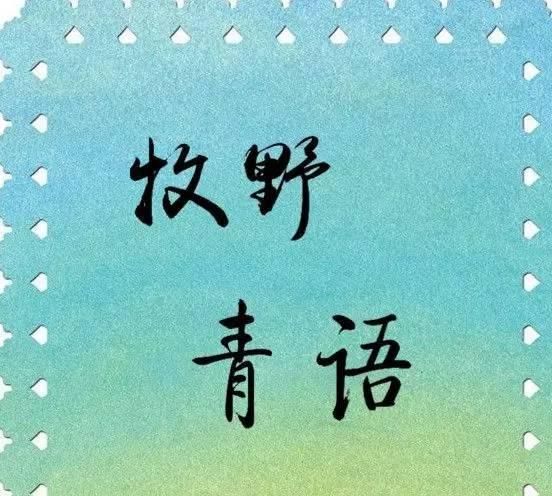 牧野
青语